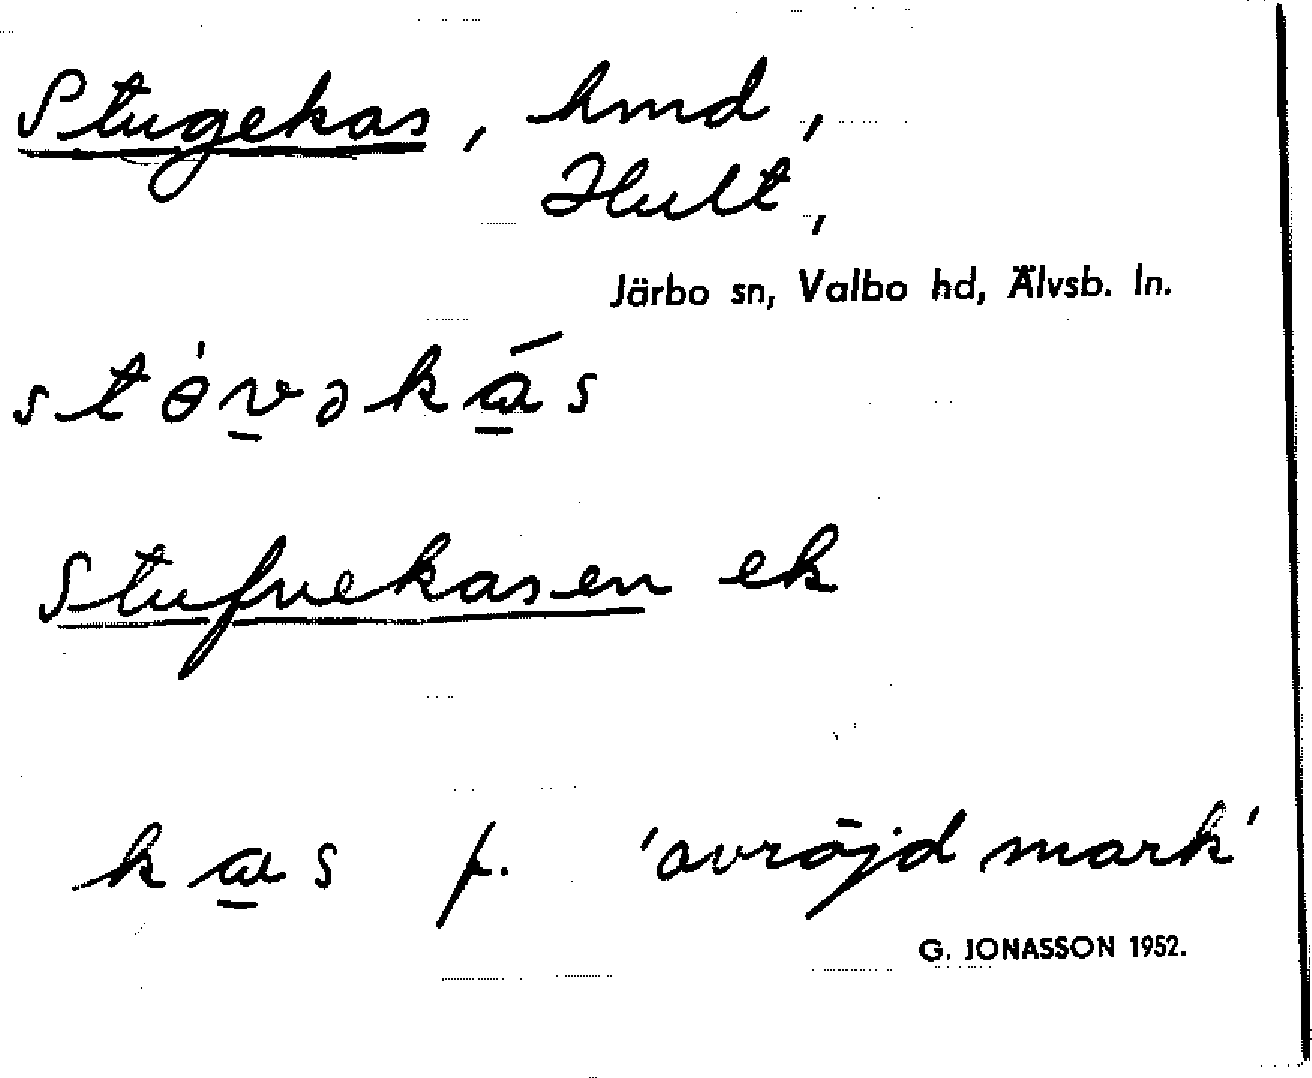 Stugekas, hmd,
Hult,
Järbo sn, Valbo hd, Älvsb. ln.
stèvəkás
Stufvekasen ek
kas f. 'avröjd mark'
G. JONASSON 1952.